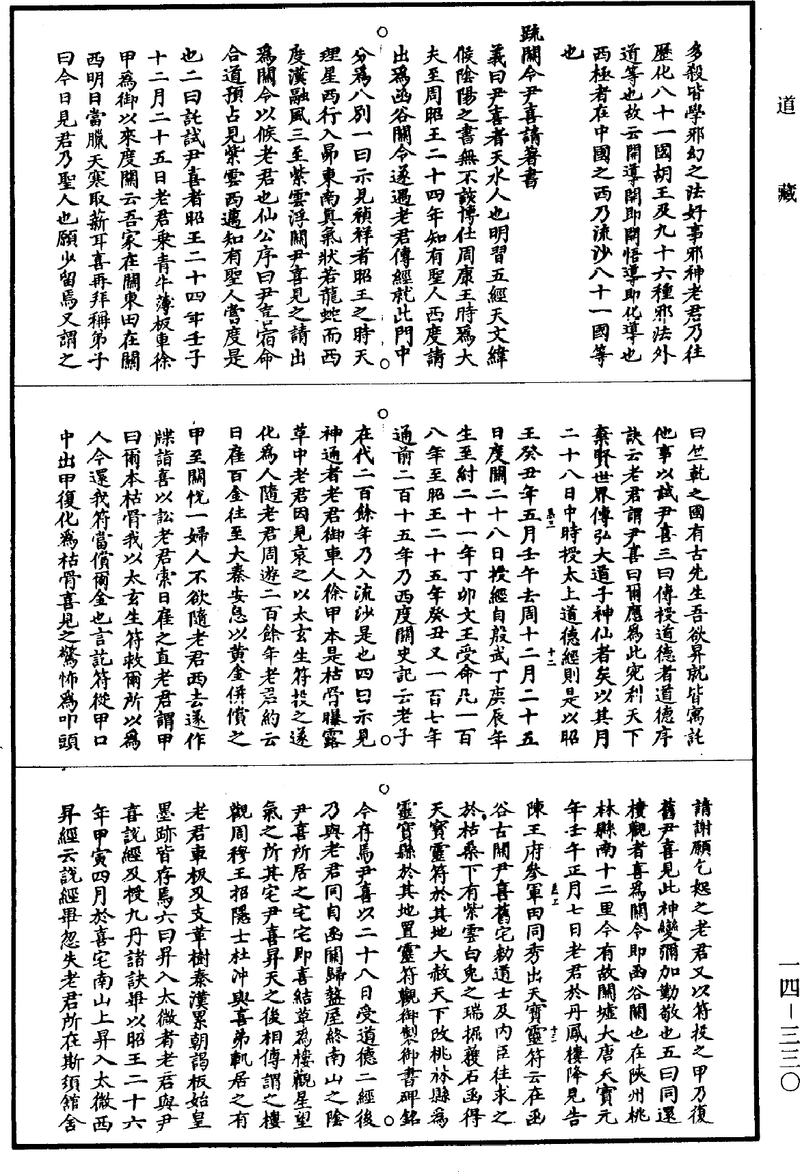 道藏
多殺皆學邪幻之法好事邪神老君乃往
歷化八十一國胡王及九十六種邪法外
道等也故云開導開即開悟導即化導也
西極者在中國之西乃流沙八十一國等
也
疏關令尹喜請著書
義曰尹喜者天水人也明習五經天文緯
候陰陽之書無不該博仕周康王時為大
夫至周昭王二十四年知有聖人西度請
出為函谷關令遂遇老君傳經就此門中
分為八別一曰示見禎祥者昭王之時天
理星西行入昴東南真氣狀若龍蛇而西
度漢融風三至紫雲浮關尹喜見之請出
為關令以候老君也仙公序曰尹喜宿命
合道預占見紫雲西邁知有聖人當度是
也二曰託試尹喜者昭王二十四年壬子
十二月二十五日老君乘青牛薄板車徐
甲為御以來度關云吾家在關東田在關
西明日當臘天寒取薪耳喜再拜稱弟子
曰今日見君乃聖人也願少留焉又謂之
曰竺乾之國有古先生吾欲昇就皆寓託
他事以試尹喜三曰傳授道德者道德序
訣云老君謂尹喜曰爾應為此宛利天下
棄賢世界傳弘大道子神仙者矣以其月
二十八日中時授太上道德經則是以昭
王癸丑年五月壬午去周十二月二十五
日度關二十八日授經自殷武丁庚辰年
生至紂二十一年丁卯文王受命凡一百
八年至昭王二十五年癸丑又一百七年
通前二百十五年乃西度關史記云老子
在代二百餘年乃入流沙是也四曰示見
神通者老君御車人徐甲本是枯骨曝露
草中老君因見哀之以太玄生符投之遂
化為人隨老君周遊二百餘年老君約云
日雇百金往至大秦安息以黃金併償之
甲至關悅一婦人不欲隨老君西去遂作
牒詣喜以訟老君索日雇之直老君謂甲
曰爾本枯骨我以太玄生符救爾所以為
人今還我符當償爾金也言訖符從甲口
中出甲復化為枯骨喜見之驚怖為叩頭
請謝願乞恕之老君又以符投之甲乃復
舊尹喜見此神變彌加勤敬也五曰同還
樓觀者喜為關令即函谷關也在陝州桃
林縣南十二里今有故關墟大唐天寶元
年壬午正月七日老君於丹鳳樓降見告
陳王府參軍田同秀出天寶靈符云在函
谷古關尹喜舊宅勅道士及內臣往求之
於枯桑下有紫雲白兔之瑞掘獲石函得
天寶靈符於其地大赦天下改桃林縣為
靈寶縣於其地置靈符觀御製御書碑銘
今存焉尹喜以二十八日受道德二經後
乃與老君同自函關歸盩厔終南山之陰
尹喜所居之宅宅即喜結草為樓觀星望
氣之所其宅尹喜昇天之後相傳謂之樓
觀周穆王招隱士杜沖與喜弟軌居之有
老君車板及支革樹秦漢累朝謁板始皇
墨跡皆存焉六曰昇入太微者老君與尹
喜說經及授九丹諸訣畢以昭王二十六
年甲寅四月於喜宅南山上昇入太微西
昇經云說經畢忽失老君所在斯須舘舍
一四-三三〇